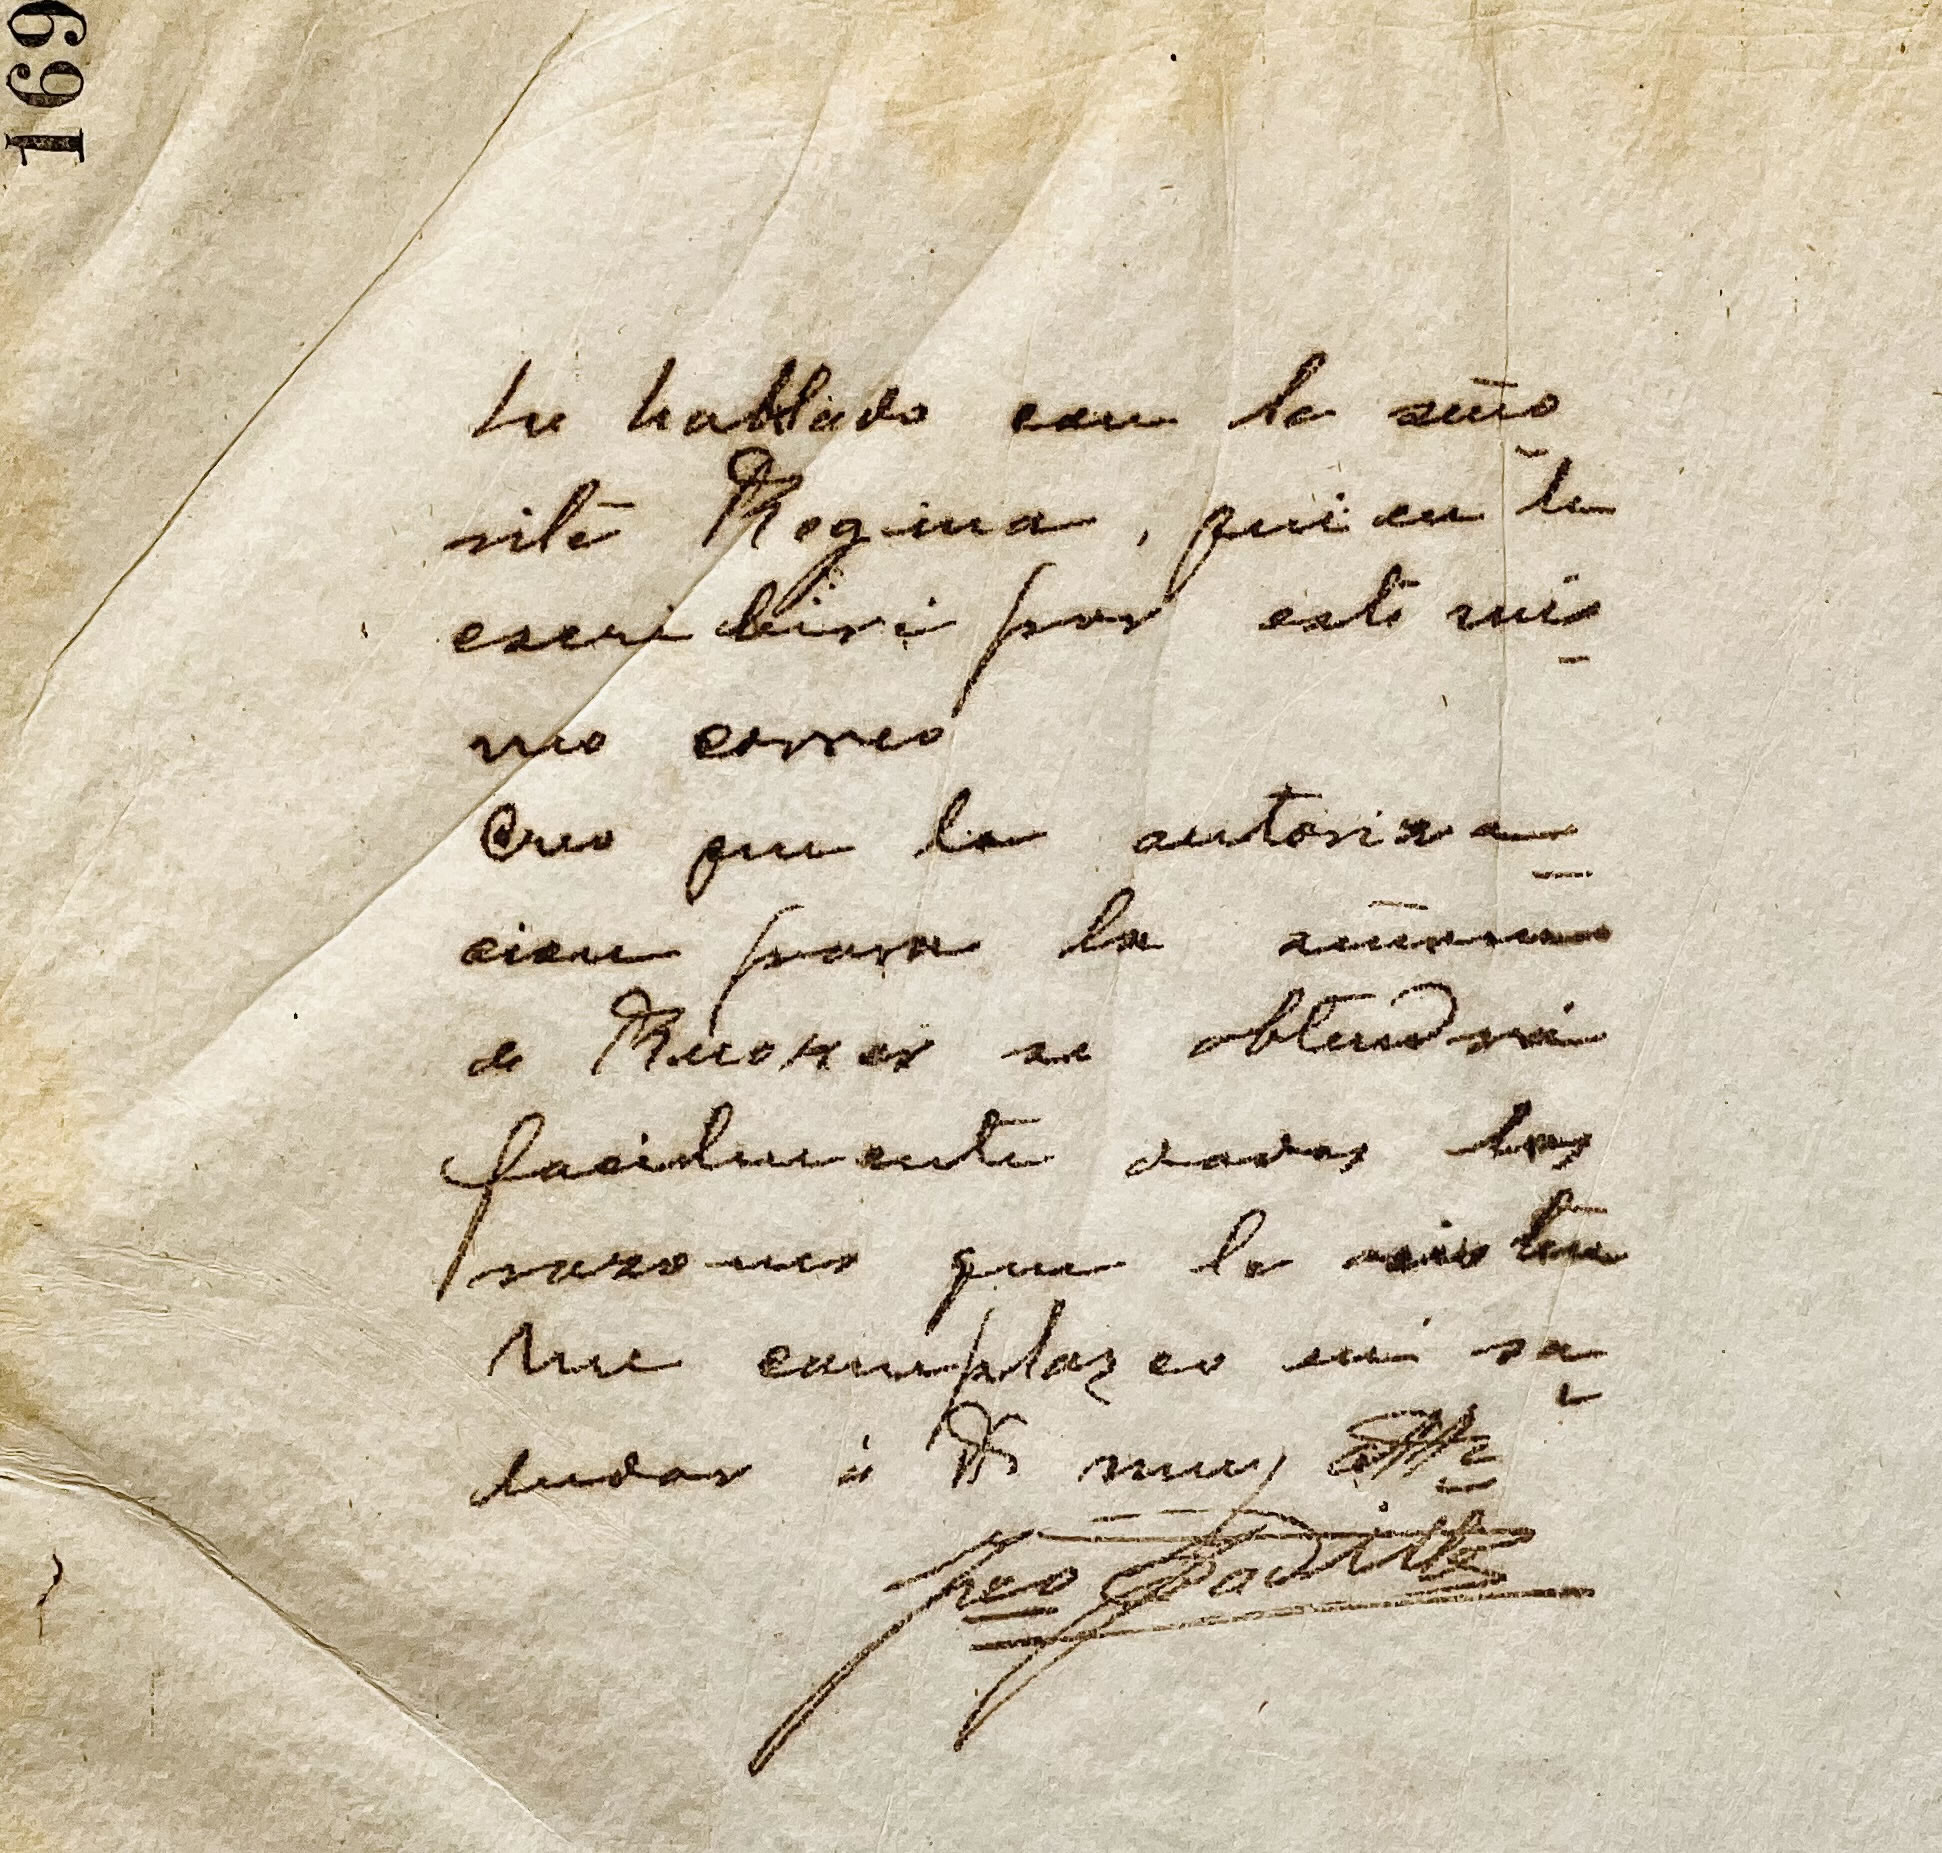 169
he hablado con la seño
rita Regina, quien le
escribirá por este mis
mo correo
Creo que la autoriza
cion para la señora
de Muoxas se obtendrá
facilmente dadas las
razones que le asisten
Me complazco en sa
ludar á V muy atte
Fco Padilla